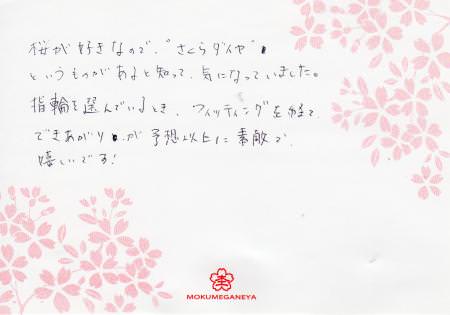 桜が好きなので、"さくらダイヤ"
というものがあると知って、気になっていました。
指輪を選んでいるとき、フィッティングを経て
できあがりが予想以上に素敵で
嬉しいです!
MOKUMEGANEYA